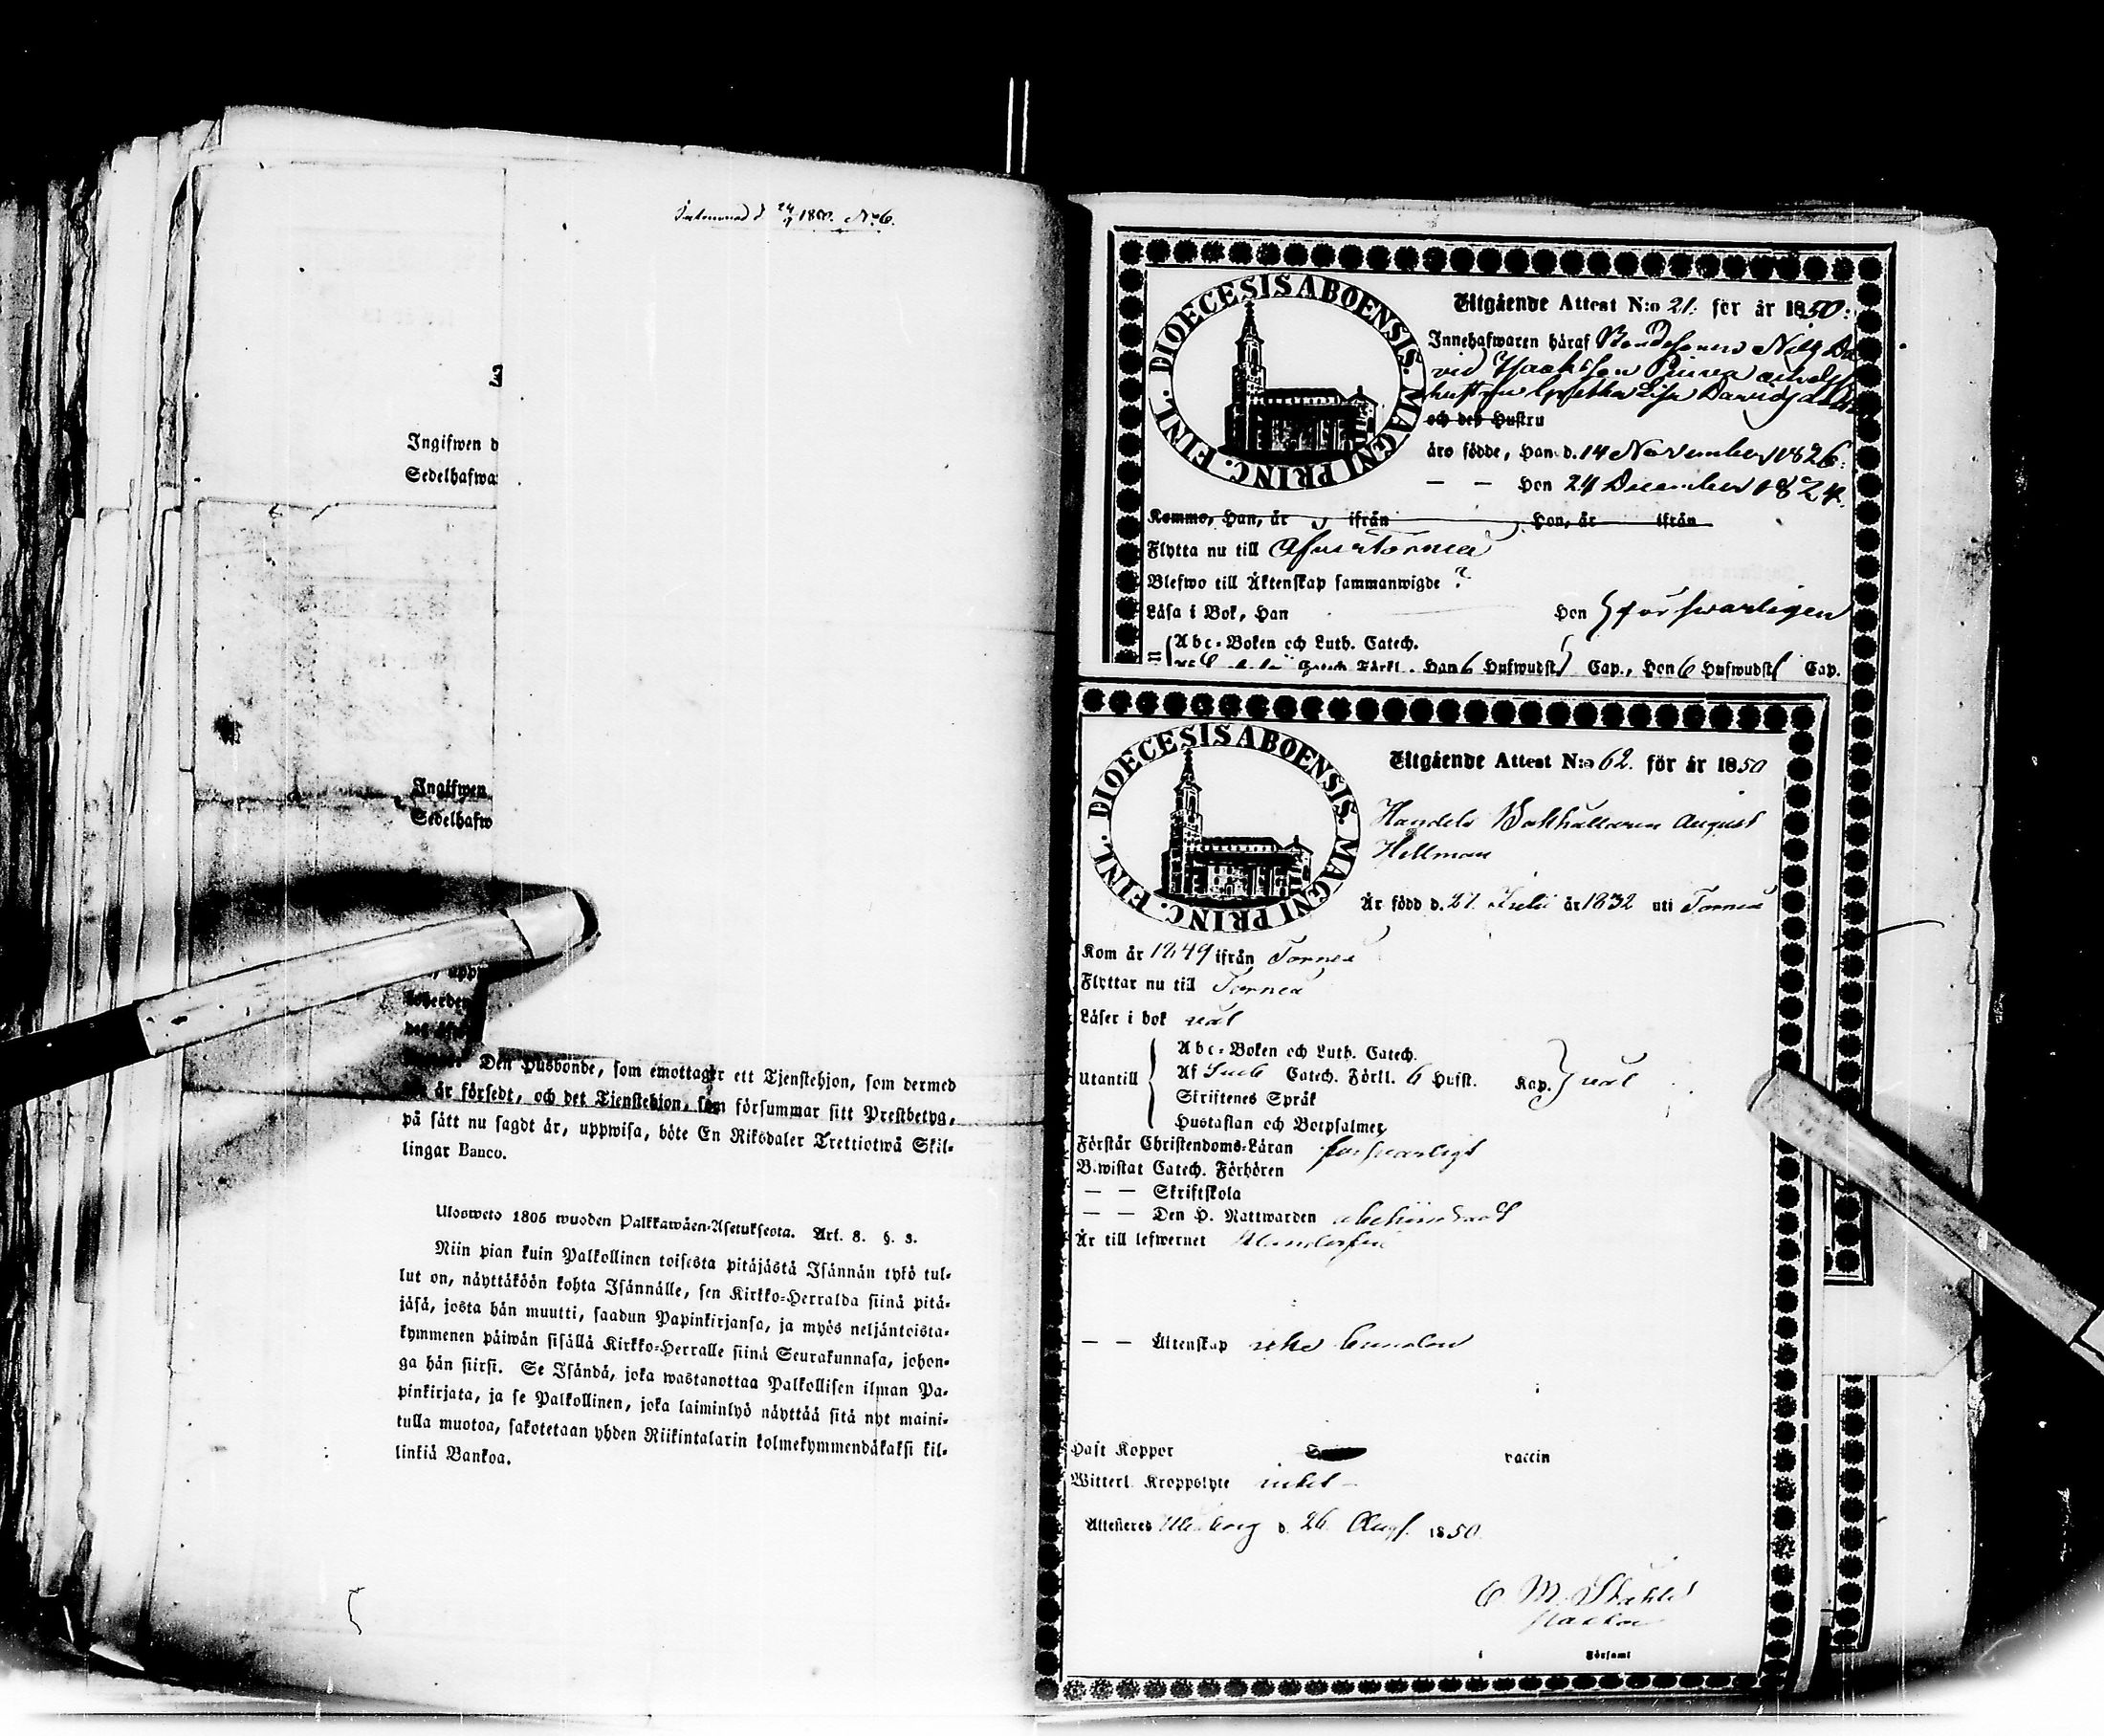 d. 24/9 1850. No 6.
Ingifwen d
Sedelhafwa
Ingifwen
Sedelhafw
Den Husbonde, som emottager ett Tjenstehjon, som dermed
är försedt, och det Tjenstehjon, som försummar sitt Prestbetyg,
på sätt nu sagdt är, uppwisa, böte En Riksdaler Trettiotwå Skil-
lingar Banco.
Ulosweto 1805 wuoden Palkkawäen-Asetuksesta. Art. 8. §. 3.
Niin pian kuin Palkollinen toisesta pitäjästä Isännän tykö tul-
lut on, näyttäköön kohta Isännälle, sen Kirkko-Herralda siinä pitä-
jäsä, josta hän muutti, saadun Papinkirjansa, ja myös neljäntoista-
kymmenen päiwän sisällä Kirkko-Herralle siinä Seurakunnasa, johon-
ga hän siirsi. Se Isändä, joka wastanottaa Palkollisen ilman Pa-
pinkirjata, ja se Palkollinen, joka laiminlyö näyttää sitä nyt maini-
tulla muotoa, sakotetaan yhden Riikintalarin kolmekymmendäkaksi kil-
linkiä Bankoa.
DIOECESIS ABOENSIS. MAGNI PRINC. FINL.
Utgående Attest N:o 21. för år 1850:
Innehafwaren häraf Bondesonen Nils Da
vid Isaksson
hustru Greta Lisa Davidsdotter
och dess Hustru
äro födde, Han d. 14 November 1826:
— — Hon 24 December 1824.
Kommo, Han, år ifrån Hon, år ifrån
Flytta nu till Öfvertorneå
Blefwo till Äktenskap sammanwigde ?
Läsa i Bok, Han Hon försvarligen
Abc-Boken och Luth. Catech.
Catech. Förkl. Han 6 Hufwudst. Cap., Hon 6 Hufwudst. Cap.
DIOECESIS ABOENSIS. MAGNI PRINC. FINL.
Utgående Attest N:o 62. för år 1850
Handels Bokhållaren August
Hellman
Är född d. 27 Julii år 1832 uti Torneå
Kom år 1849 ifrån Torneå
Flyttar nu till Torneå
Läser i bok väl
Utantill
Abc-Boken och Luth. Catech.
Af Sveb Catech. Förkl. 6 Hufst. Kap. väl
Skriftenes Språk
Hustaflan och Botpsalmer
Förstår Christendoms-Läran försvarligt
Bewistat Catech. Förhören
— — Skriftskola
— — Den H. Nattwarden obehindrad
Är till lefwernet oklanderlig
— — Äktenskap icke bunden
Haft Koppor vaccin
Witterl. Kroppslyte intet
Attesteras Uleåborg d. 26 Aug. 1850.
C M. Ståhle
Församl